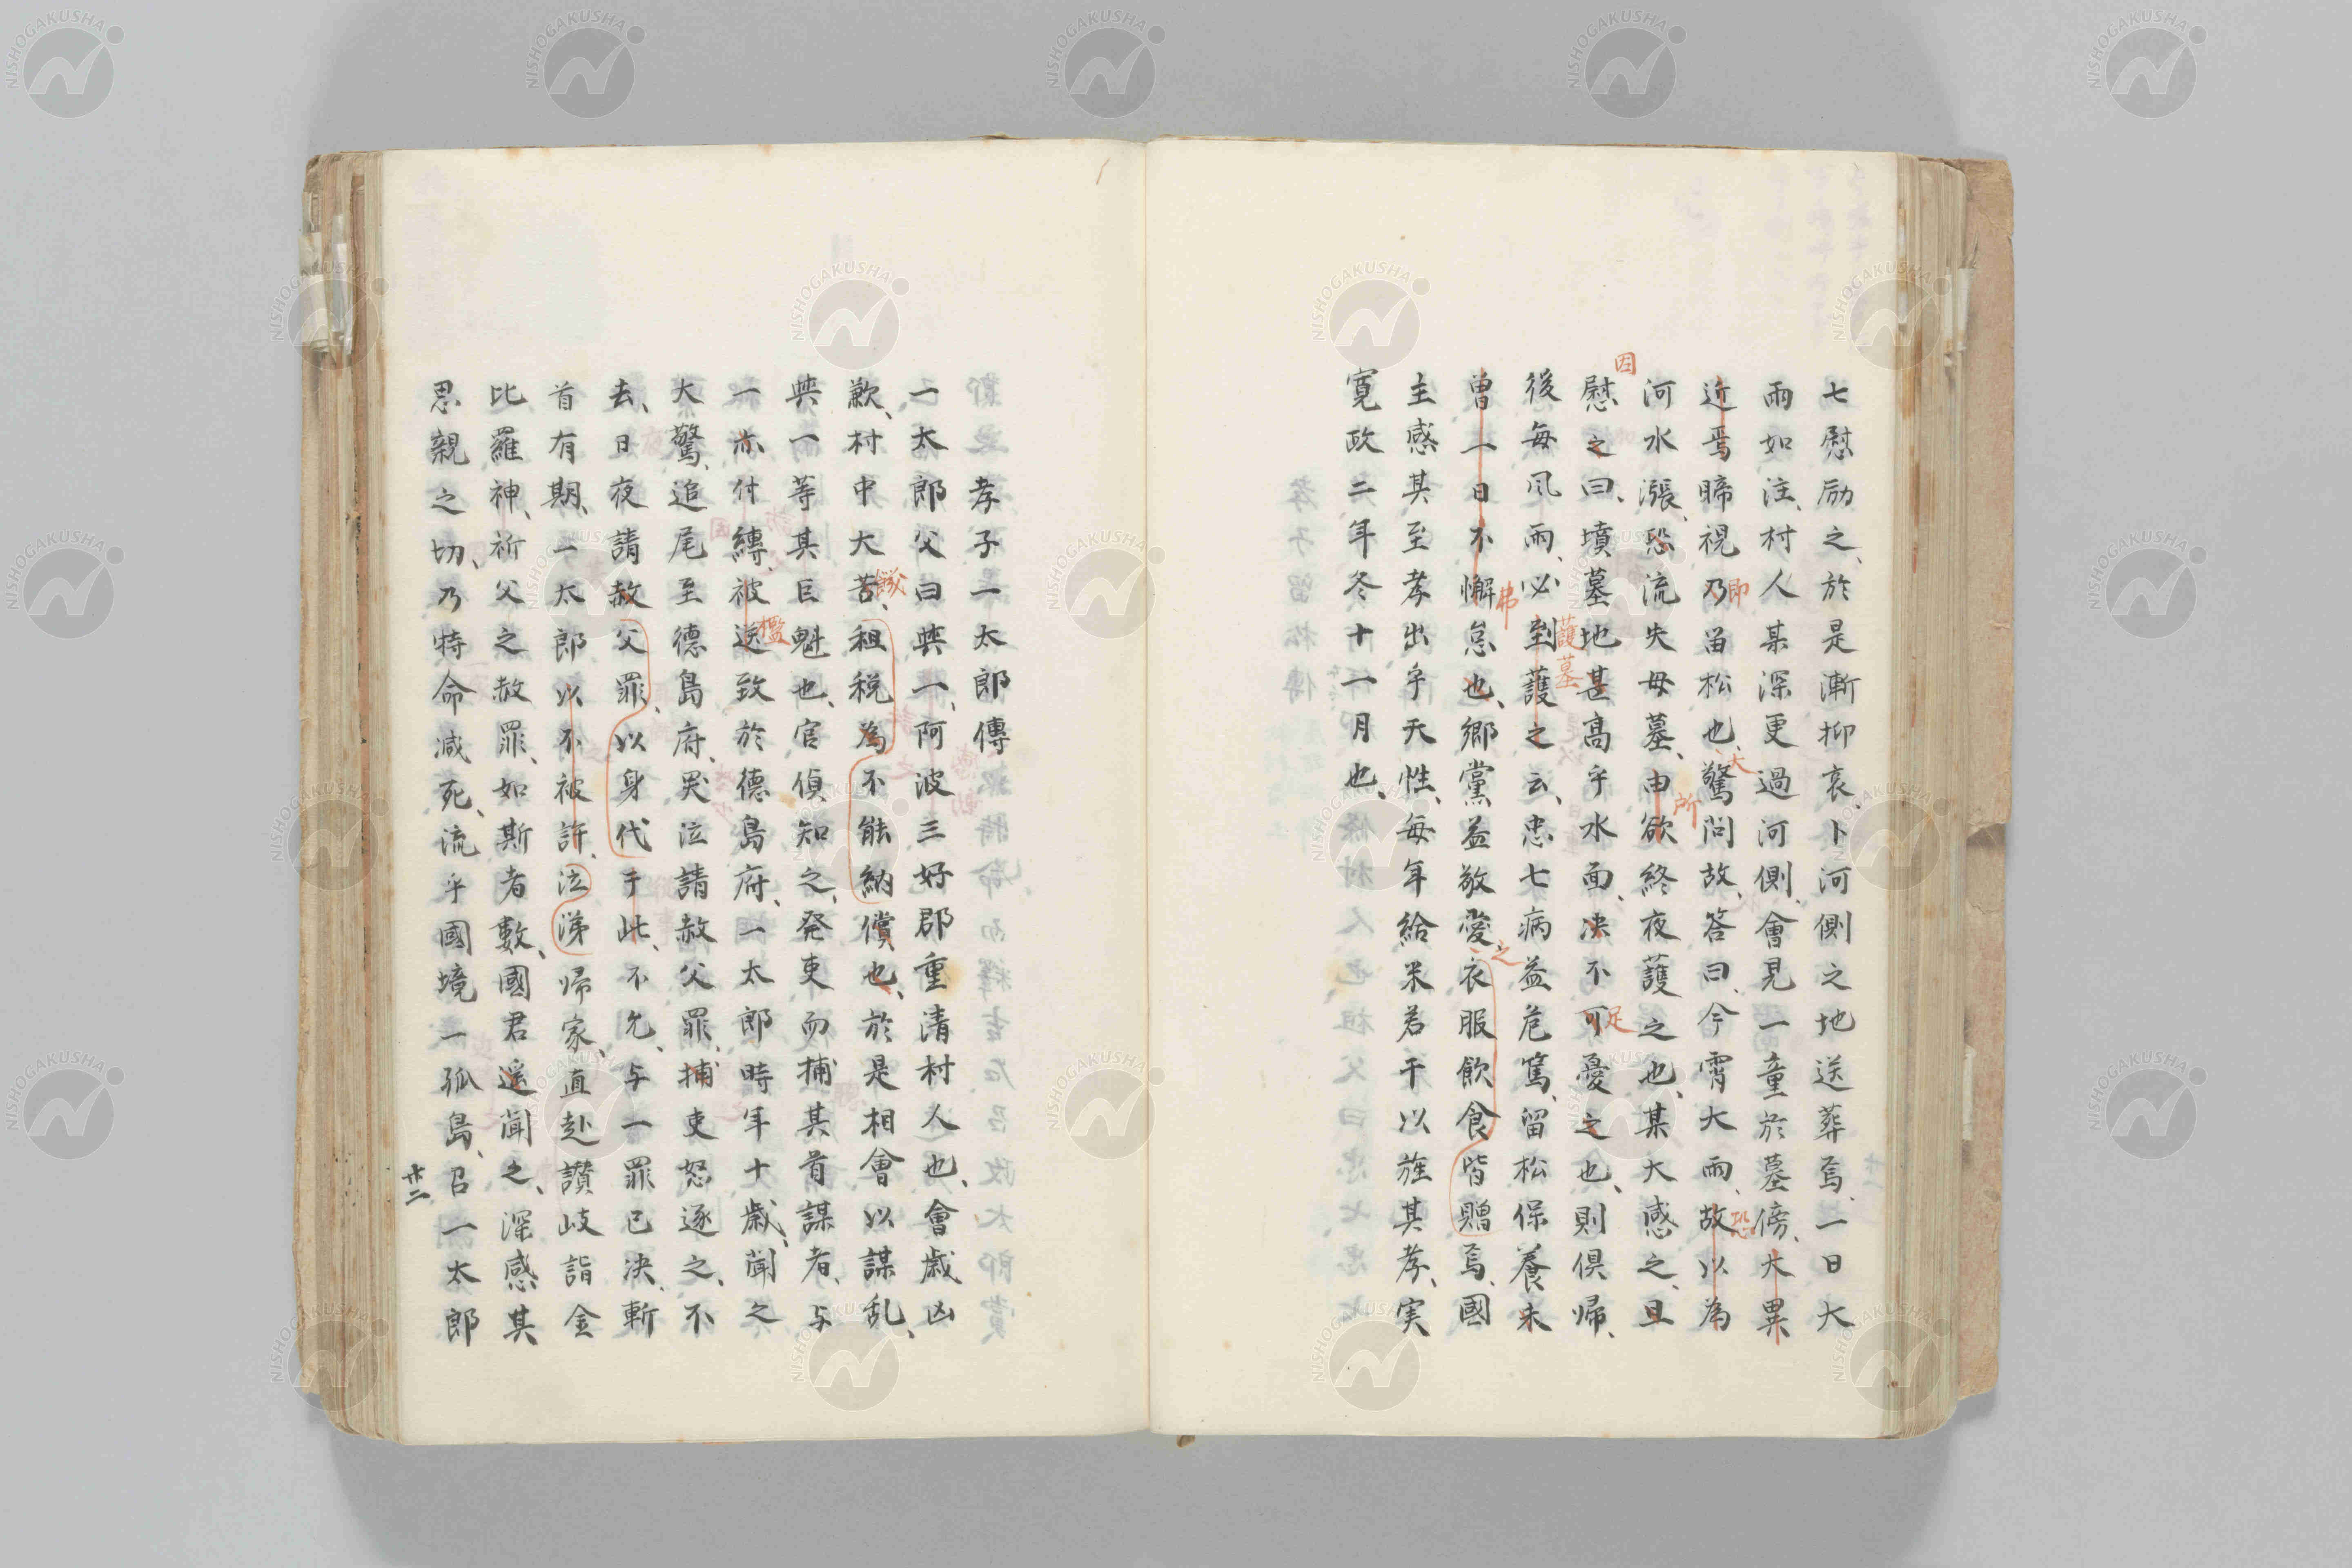 七慰励之、於是漸抑哀、卜河側之地送葬焉、一日大
雨如注、村人某深更過河側、會見一童於墓傍、大異
近焉睇視乃留松也、驚問故、答曰、今霄大雨、故以為
即
大
恐
河水漲、恐流失母墓、由欲終夜護之也、某大感之、且
所
慰之曰、墳墓地甚高乎水面、决不可憂之也、則倶帰、
因
足
後毎風雨、必到護之云、忠七病益危篤、留松保養未
護墓
曽一日不懈怠也、郷黨益敬愛衣服飲食皆贈焉、國
弗
之
主感其至孝出乎天性、毎年給米若干以旌其孝、実
寛政二年冬十一月也、
孝子一太郎傳
一太郎父曰與一、阿波三好郡重清村人也、會歳凶
歉、村中大苦、租税為不能納償也、於是相會以謀乱、
饑
與一等其巨魁也、官偵知之、発吏而捕其首謀者、与
一亦付縛、被送致於德島府、一太郎時年十歳、聞之
檻
大驚、追尾至德島府、哭泣請赦父罪、捕吏怒逐之、不
去、日夜請赦父罪、以身代于此、不允、与一罪已决、斬
首有期、一太郎以不被許、泣涕帰家、直赴讃岐詣金
比羅神、祈父之赦罪、如斯者數、國君遥聞之、深感其
思親之切、乃特命减死、流乎國境一孤島、召一太郎
廿二